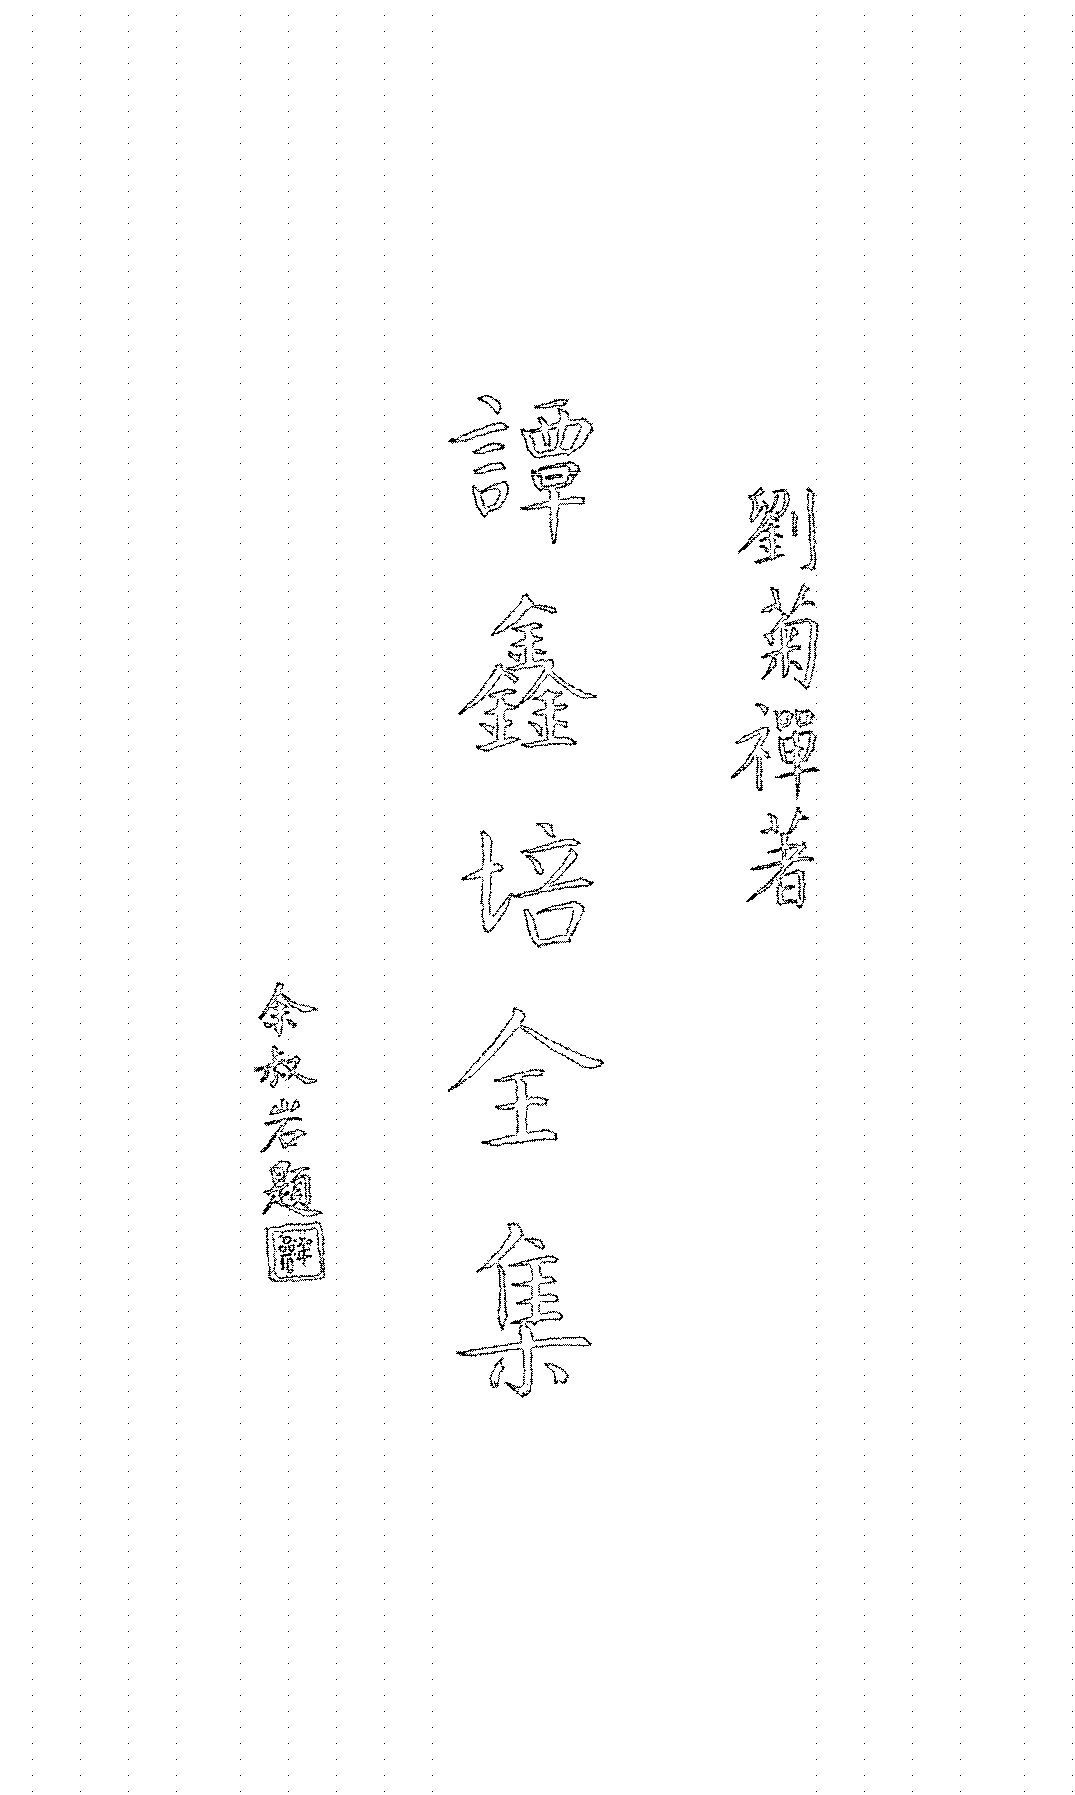 劉菊禪著
譚鑫培全集
余叔岩題